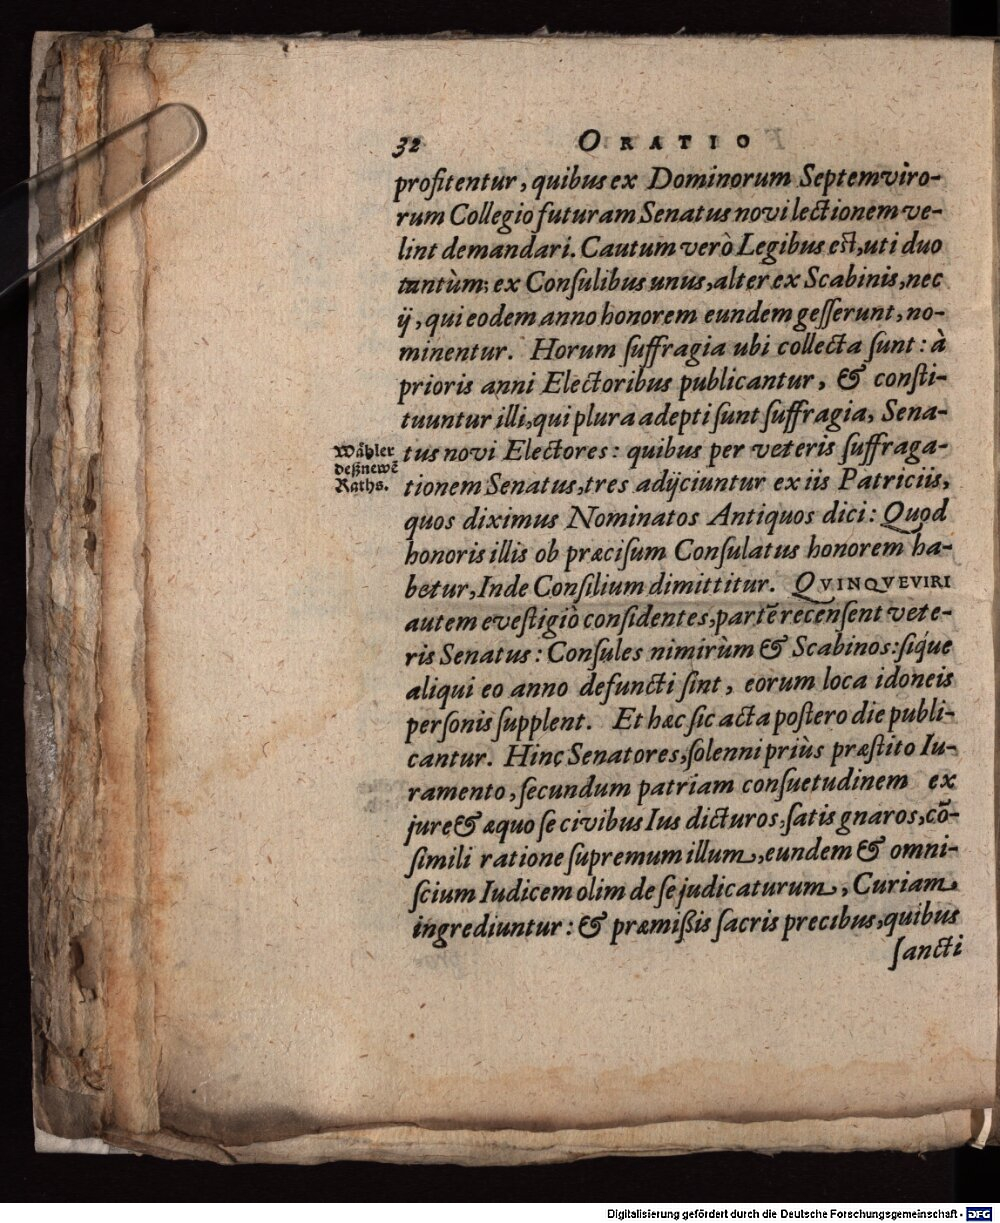 32 ORATIO
profitentur, quibus ex Dominorum Septemviro-
rum Collegio futuram Senatus novi lectionem ve-
lint demandari. Cautum verò Legibus est, uti duo
tantùm; ex Consulibus unus, alter ex Scabinis, nec
ij, qui eodem anno honorem eundem gesserunt, no-
minentur. Horum suffragia ubi collecta sunt: à
prioris anni Electoribus publicantur, & consti-
tuuntur illi, qui plura adepti sunt suffragia, Sena-
tus novi Electores: quibus per veteris suffraga-
tionem Senatus, tres adijciuntur ex iis Patriciis,
quos diximus Nominatos Antiquos dici: Quod
honoris illis ob præcisum Consulatus honorem ha-
betur, Inde Consilium dimittitur. QVINQVEVIRI
autem evestigiò considentes, partẽ recensent vete-
ris Senatus: Consules nimirùm & Scabinos: siq́ue
aliqui eo anno defuncti sint, eorum loca idoneis
personis supplent. Et hæc sic acta postero die publi-
cantur. Hinc Senatores, solenni priùs præstito Iu-
ramento, secundum patriam consuetudinem ex
jure & æquo se civibus Ius dicturos, satis gnaros, cõ-
simili ratione supremum illum, eundem & omni-
scium Iudicem olim de se judicaturum, Curiam
ingrediuntur: & præmißis sacris precibus, quibus
sancti
Wähler
deß newẽ
Raths.
Digitalisierung gefördert durch die Deutsche Forschungsgemeinschaft - DFG